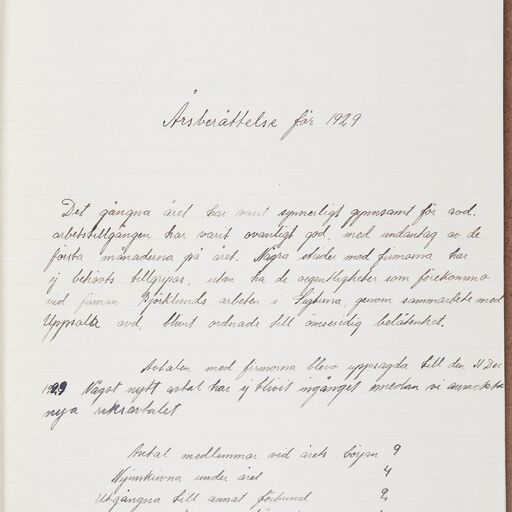 Årsberättelse för 1929
Det gångna året har varit synnerligt gynnsamt för avd.
arbetstillgången har varit ovanligt god, med undantag av de
första månaderna på året. Några strider med firmorna har
ej behövts tillgripas, utan ha de oegentligheter som förekommo
vid firman Björklunds arbeten i Sigtuna, genom sammarbete med
Uppsala avd, blivit ordnade till ömsesidig belåtenhet.
Avtalen med firmorna blevo uppsagda till den 31 Dec
1929 Något nytt avtal har ej blivit ingånget emedan vi avvakta
nya riksavtalet
Antal medlemmar vid årets början 9
Nyinskrivna under året 4
Utgångna till annat förbund 2